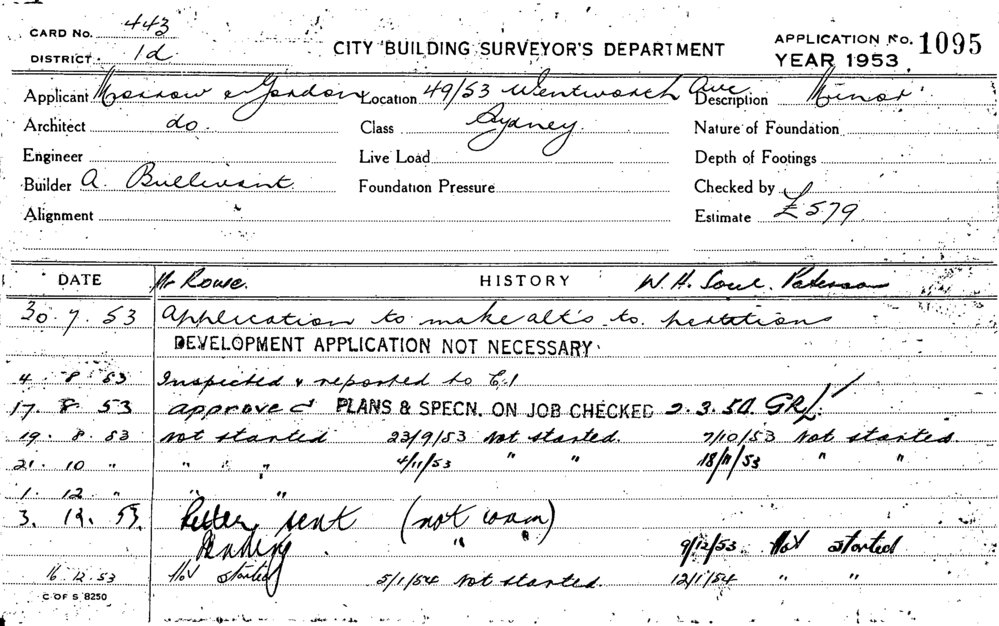 CARD No. 443
DISTRICT. 1d
CITY BUILDING SURVEYOR'S DEPARTMENT
APPLICATION No. 1095
YEAR 1953
Applicant Morrow & Gordon Location 49/53 Wentworth Ave Description Minor
Architect do. Class Sydney. Nature of Foundation
Engineer Live Load Depth of Footings
Builder A. Bullivant Foundation Pressure Checked by
Alignment Estimate £579
DATE Mr Rouse. HISTORY W. H. Soul Paterson
30 . 7 . 53 Application to make alt's to partitions
DEVELOPMENT APPLICATION NOT NECESSARY
4 . 8 53 Inspected & reported to C.I
17. 8 53 approved PLANS & SPECN. ON JOB CHECKED 2.3.50 GRL
19 . 8 . 53 Not started 23/9/53 Not started. 7/10/53 Not started.
21. 10 " " " " 4/11/53 " " 18/11/53 " "
1. 12 . " " "
3. 12. 53. Letter sent (not comm)
Pending " " 9/12/53 Not started
16.12.53 Not started 5/1/54 Not started. 12/1/54 " "
C OF S 8250